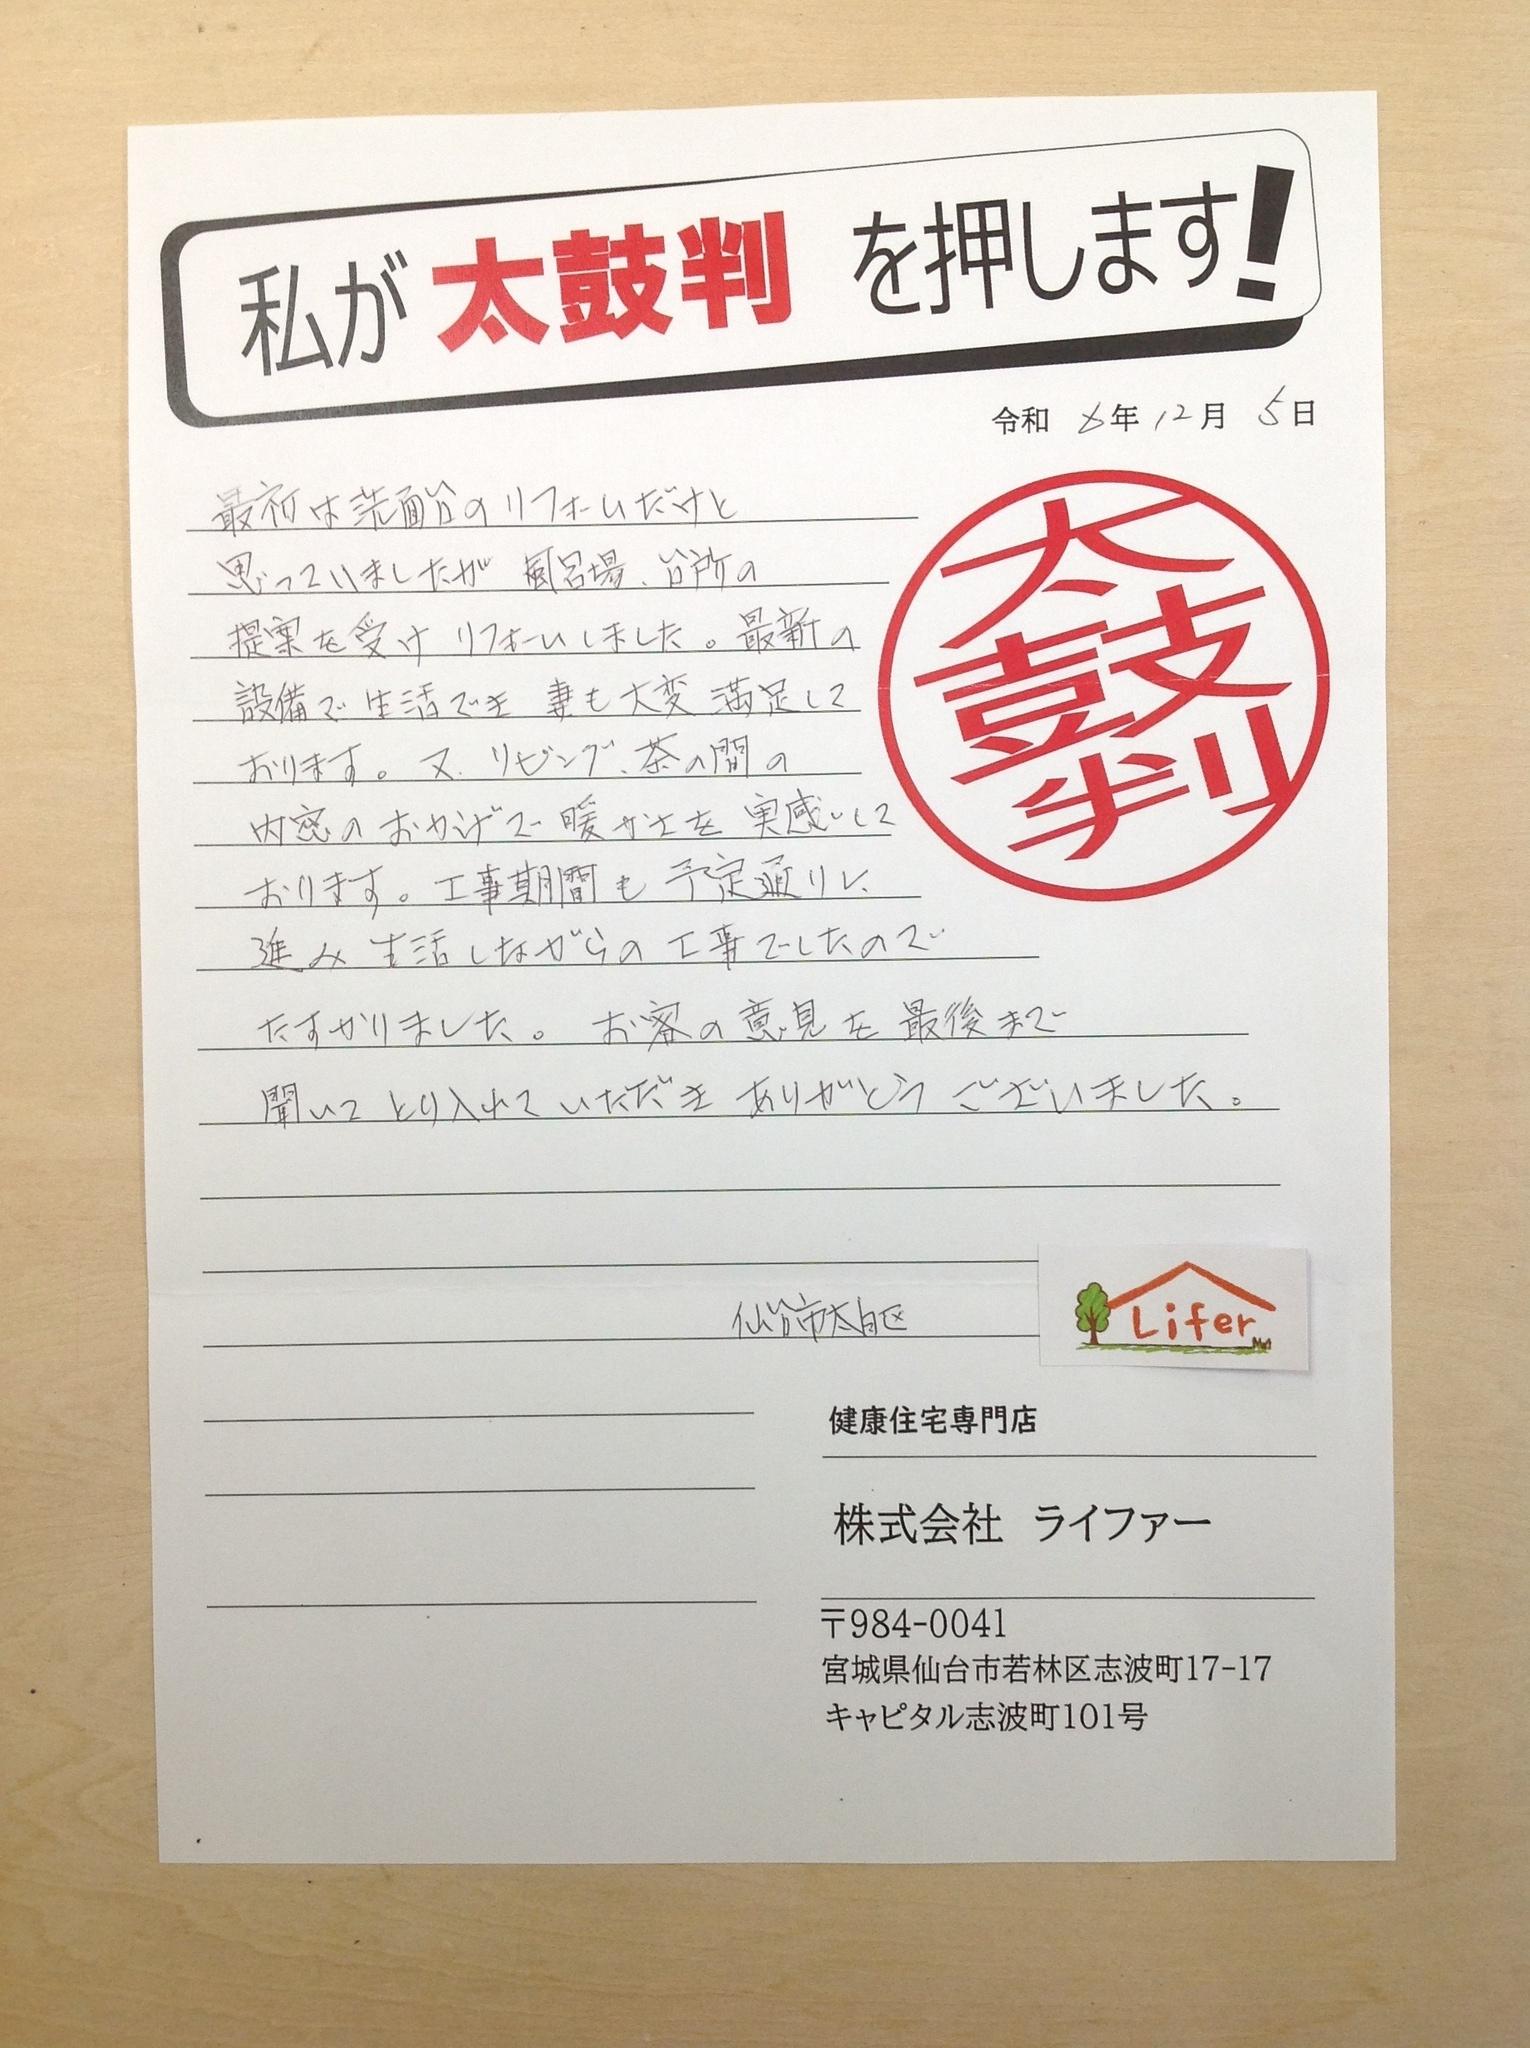 私が太鼓判を押します!
令和 6年12月 5日
最初は洗面台のリフォームだけと
思っていましたが 風呂場、台所の
提案を受け リフォームしました。最新の
設備で生活でき 妻も大変 満足して
おります。又、リビング、茶の間の
内窓のおかげで暖かさを実感して
おります。工事期間も予定通りに
進み 生活しながらの工事でしたので
たすかりました。 お客の意見を最後まで
聞いて とり入れて いただき ありがとう ございました。
太鼓判
仙台市太白区
Lifer
健康住宅専門店
株式会社 ライファー
〒984-0041
宮城県仙台市若林区志波町17-17
キャピタル志波町101号